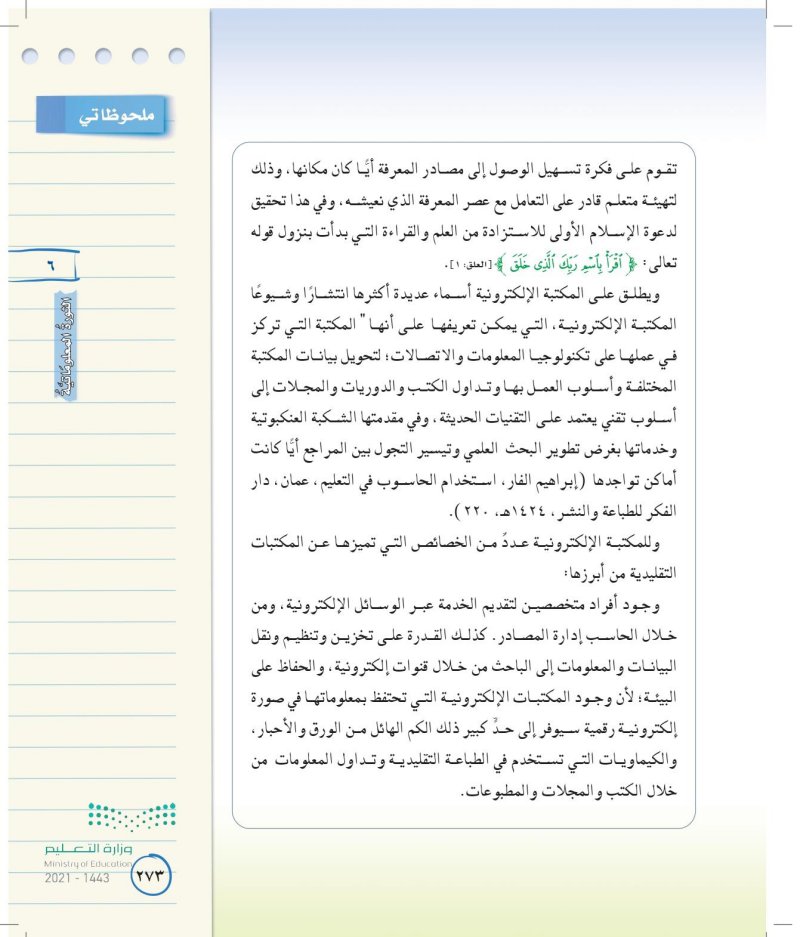 ملحوظاتي
تقوم على فكرة تسهيل الوصول إلى مصادر المعرفة أيًّا كان مكانها، وذلك
لتهيئة متعلم قادر على التعامل مع عصر المعرفة الذي نعيشه، وفي هذا تحقيق
لدعوة الإسلام الأولى للاستزادة من العلم والقراءة التي بدأت بنزول قوله
تعالى: ﴿ ٱقْرَأْ بِٱسْمِ رَبِّكَ ٱلَّذِى خَلَقَ ﴾ [العلق: ١].
ويطلق على المكتبة الإلكترونية أسماء عديدة أكثرها انتشارًا وشيوعًا
المكتبة الإلكترونية، التي يمكن تعريفها على أنها " المكتبة التي تركز
في عملها على تكنولوجيا المعلومات والاتصالات؛ لتحويل بيانات المكتبة
المختلفة وأسلوب العمل بها وتداول الكتب والدوريات والمجلات إلى
أسلوب تقني يعتمد على التقنيات الحديثة، وفي مقدمتها الشكبة العنكبوتية
وخدماتها بغرض تطوير البحث العلمي وتيسير التجول بين المراجع أيًّا كانت
أماكن تواجدها (إبراهيم الفار، استخدام الحاسوب في التعليم، عمان، دار
الفكر للطباعة والنشر، ١٤٢٤هـ، ٢٢٠).
وللمكتبة الإلكترونية عددٌ من الخصائص التي تميزها عن المكتبات
التقليدية من أبرزها:
وجود أفراد متخصصين لتقديم الخدمة عبر الوسائل الإلكترونية، ومن
خلال الحاسب إدارة المصادر. كذلك القدرة على تخزين وتنظيم ونقل
البيانات والمعلومات إلى الباحث من خلال قنوات إلكترونية، والحفاظ على
البيئة؛ لأن وجود المكتبات الإلكترونية التي تحتفظ بمعلوماتها في صورة
إلكترونية رقمية سيوفر إلى حدٍّ كبير ذلك الكم الهائل من الورق والأحبار،
والكيماويات التي تستخدم في الطباعة التقليدية وتداول المعلومات من
خلال الكتب والمجلات والمطبوعات.
٦
الثورةُ المعلوماتيَّةُ
وزارة التعليم
Ministry of Education
2021 - 1443
٢٧٣